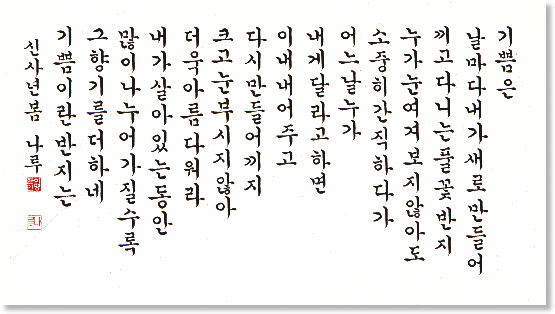 기쁨은
날마다 내가 새로 만들어
끼고 다니는 풀꽃 반지
누가 눈여겨 보지 않아도
소중히 간직하다가
어느날 누가
내게 달라고 하면
이내 내어주고
다시 만들어 끼지
크고 눈부시지 않아
더욱 아름다워라
내가 살아 있는 동안
많이 나누어 가질수록
그 향기를 더하네
기쁨이란 반지는
신사년 봄 나루